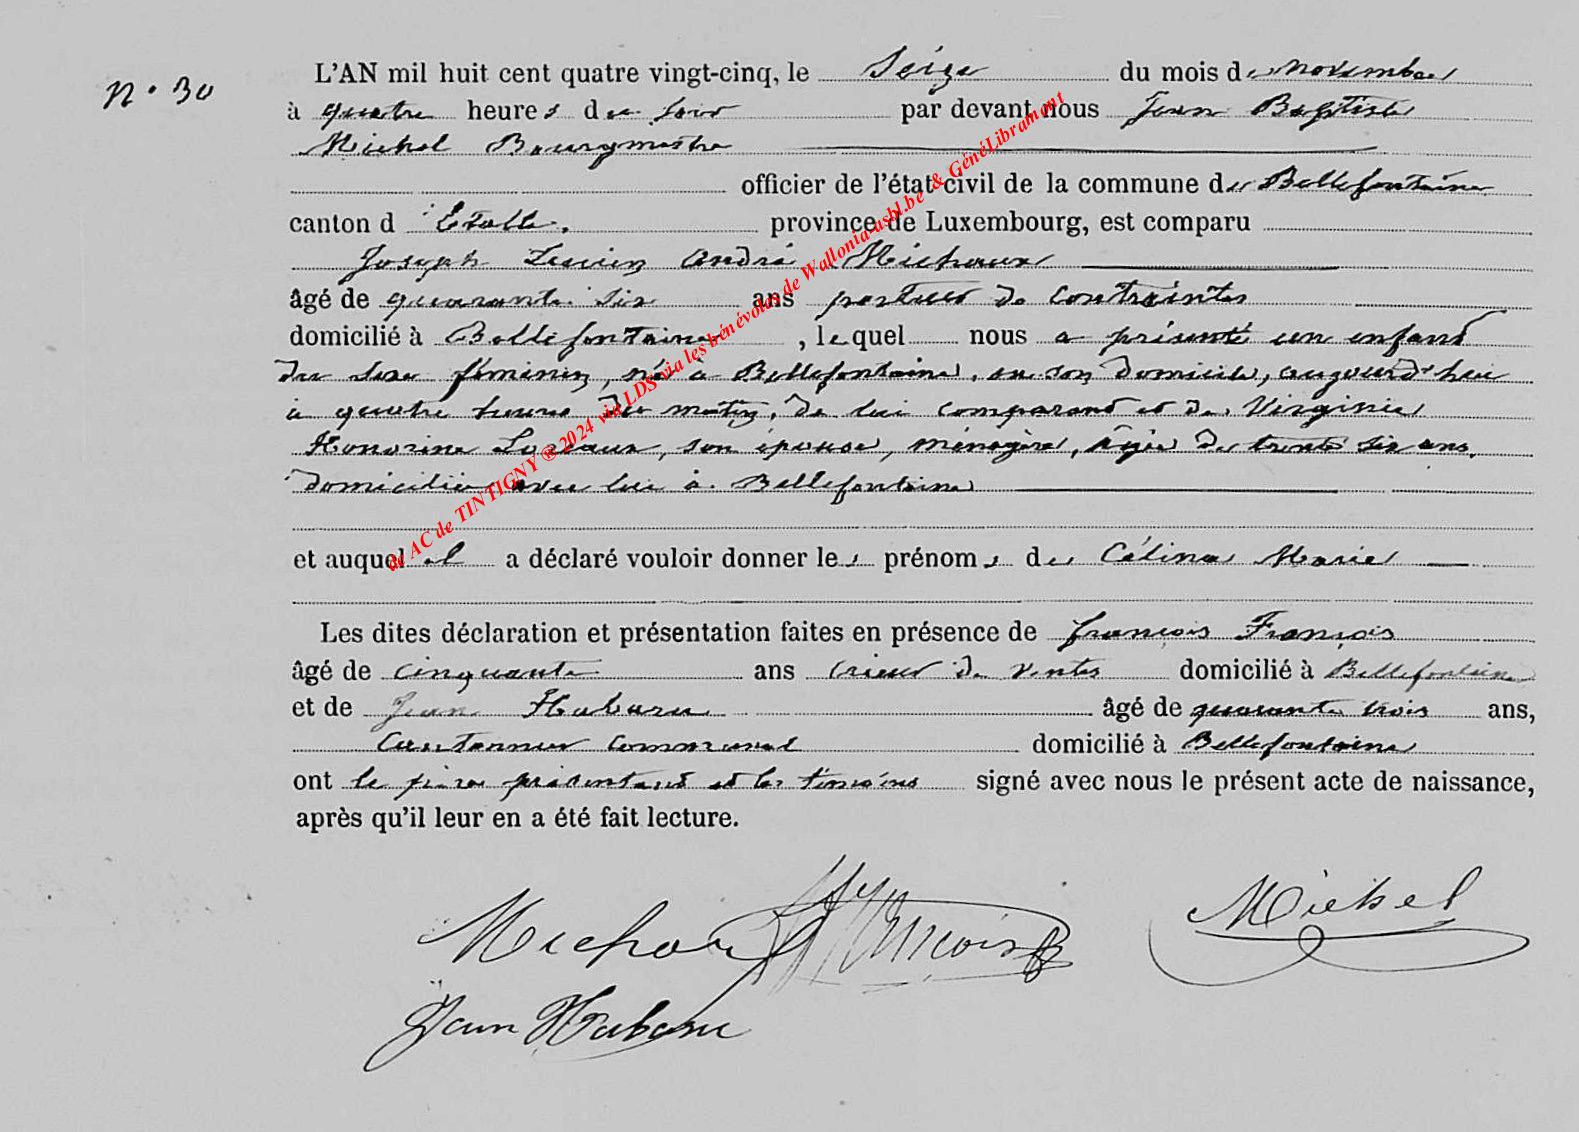 N° 30
L'AN mil huit cent quatre vingt-cinq, le Seize du mois de novembre
à quatre heures du soir par devant nous Jean Baptiste
Michel Bourgmestre
officier de l'état-civil de la commune de Bellefontaine
canton d'Etalle, province de Luxembourg, est comparu
Joseph Lucien André Michaux
âgé de quarante six ans porteur de contraintes
domicilié à Bellefontaine, lequel nous a présenté un enfant
du sexe féminin, né à Bellefontaine, en son domicile, aujourd'hui
à quatre heures du matin, de lui comparant et de Virginie
Honorine son épouse, ménagère, âgée de trente six ans,
domiciliée avec lui à Bellefontaine
et auquel il a déclaré vouloir donner les prénoms de Célina Marie
Les dites déclaration et présentation faites en présence de françois François
âgé de cinquante ans crieur de ventes domicilié à Bellefontaine
et de Jean Habaru âgé de quarante trois ans,
Cantonnier communal domicilié à Bellefontaine
ont le père présentant et les témoins signé avec nous le présent acte de naissance,
après qu'il leur en a été fait lecture.
Michaux François Michel
Jean Habaru
de AC de TINTIGNY ®2024 via LDS via les bénévoles de Wallonia-asbl.be & GénéLibramont